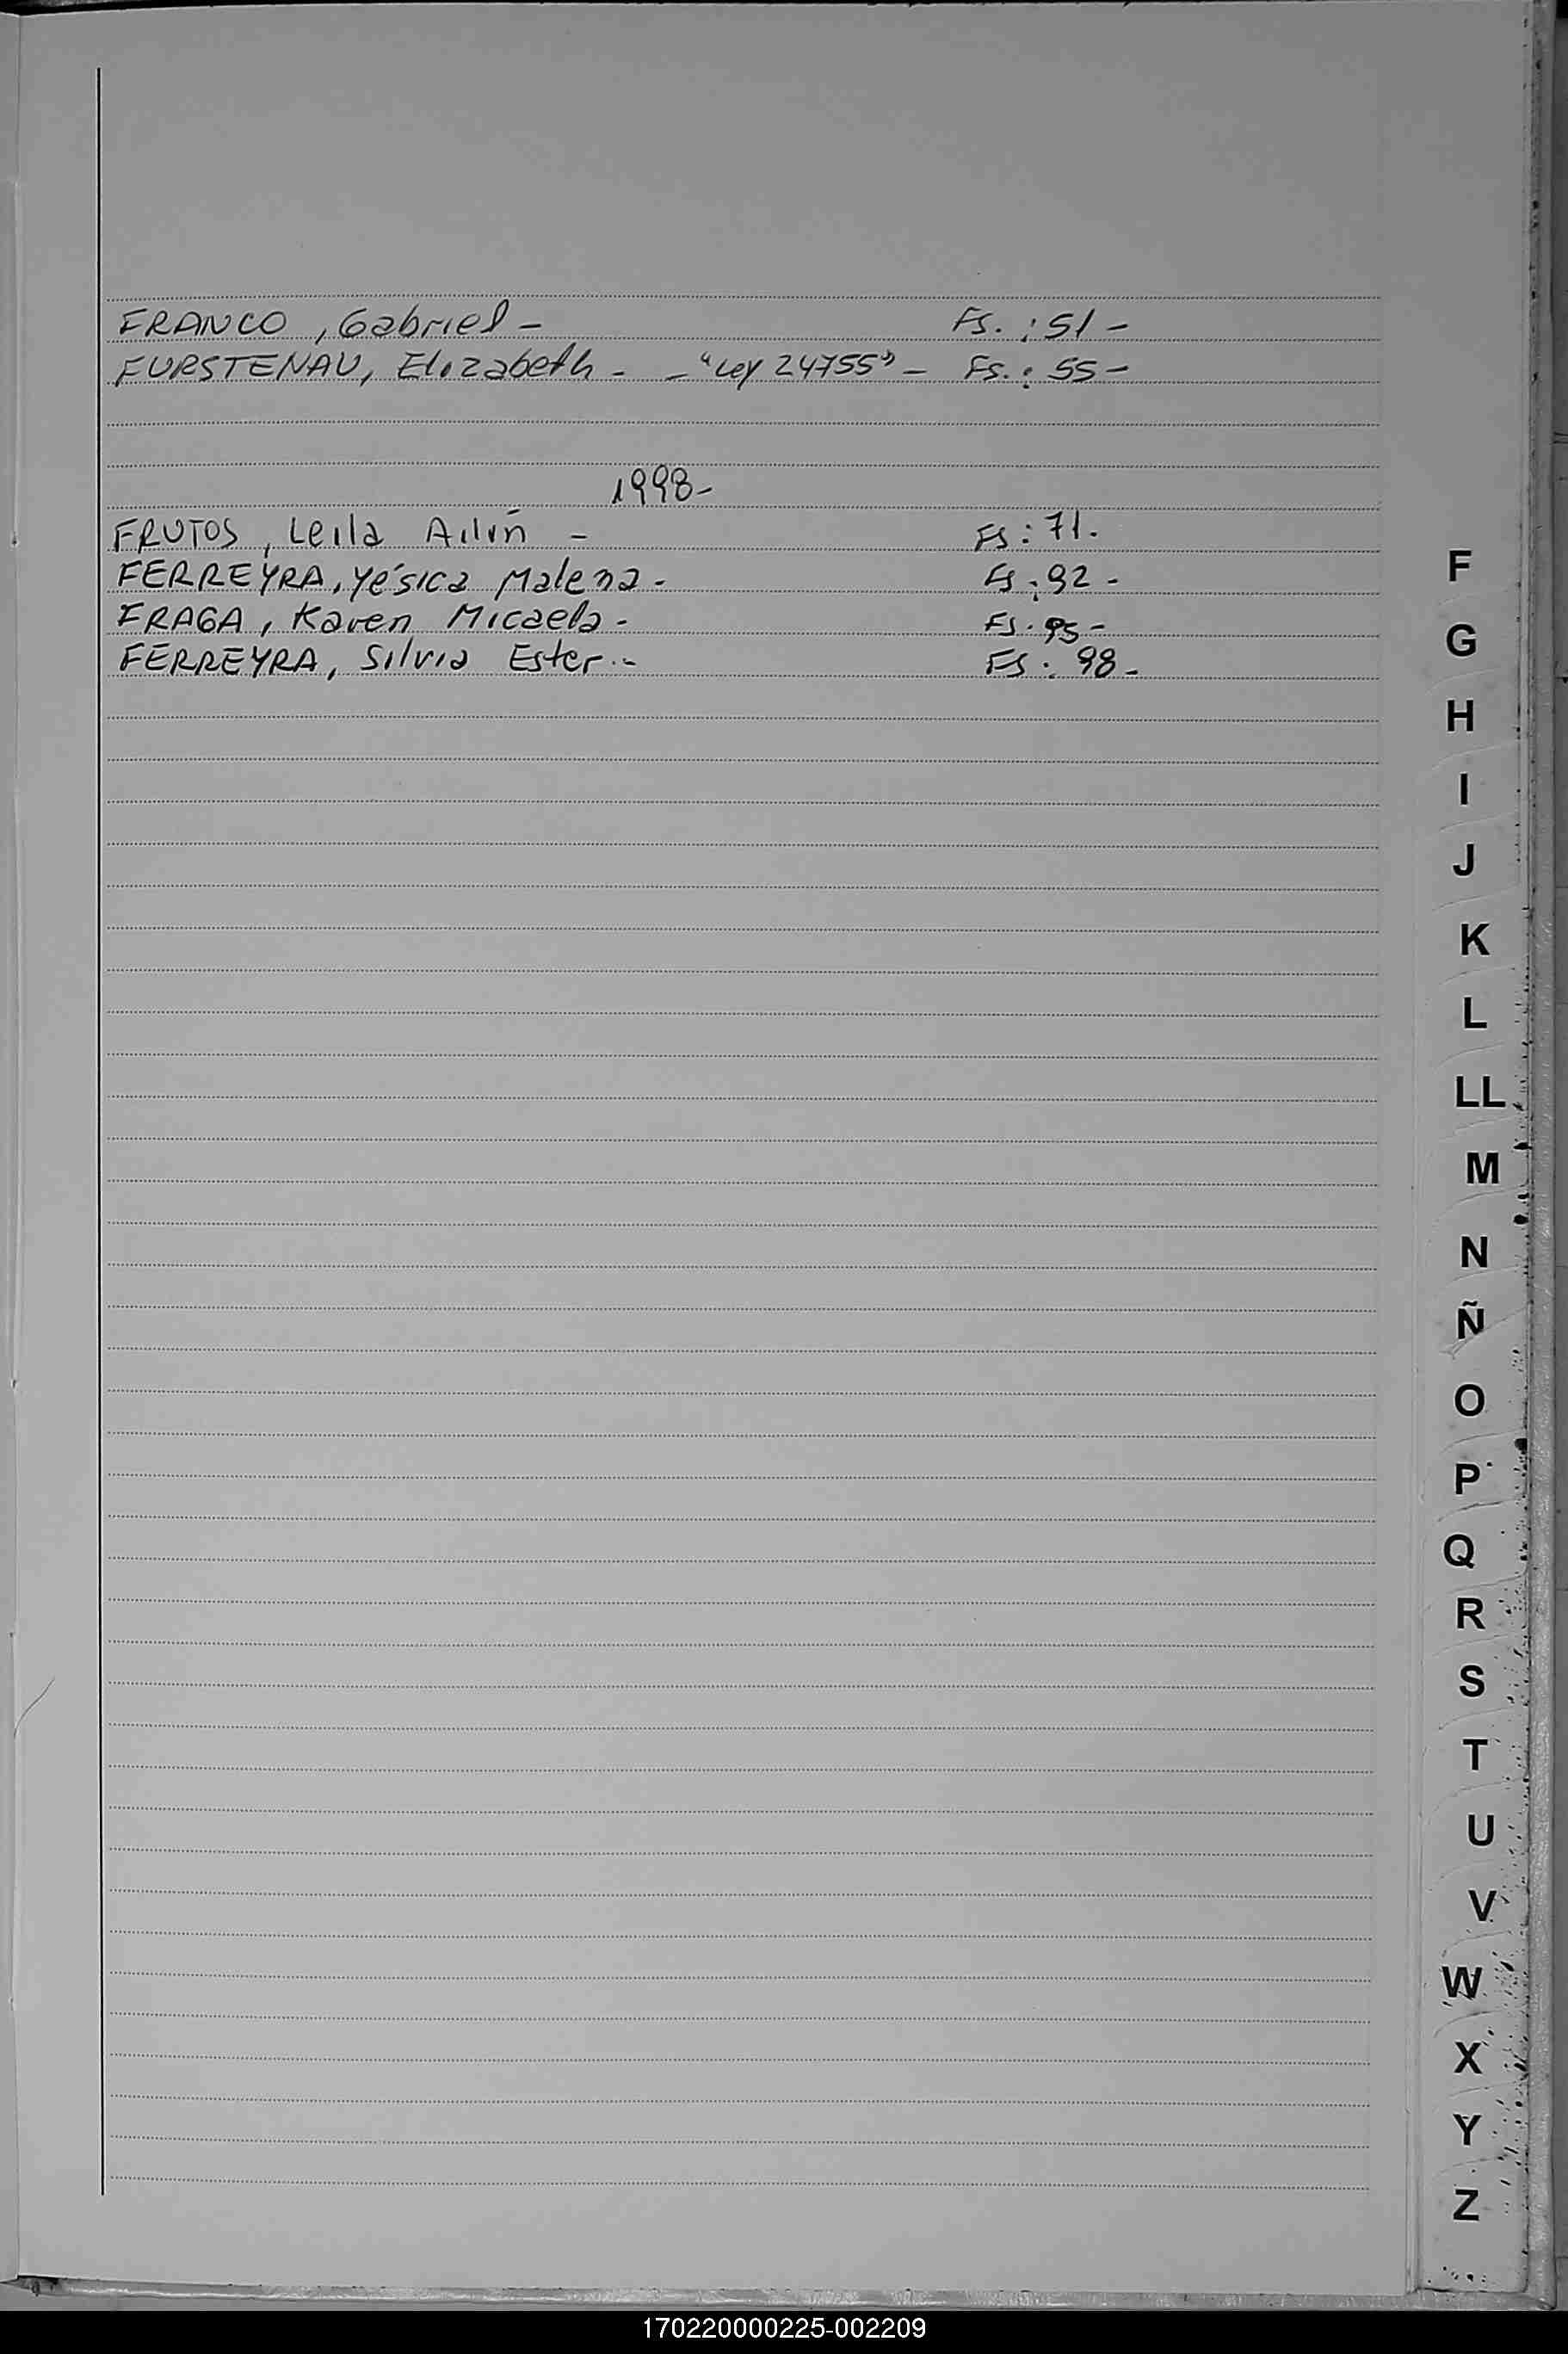 FRANCO, Gabriel - Fs.: 51 -
FURSTENAU, Elizabeth - - "Ley 24755" - Fs.: 55 -
1998-
FRUTOS, Leila Ailín - Fs: 71.
FERREYRA, Yésica Malena - Fs: 92 -
FRAGA, Karen Micaela - Fs. 95 -
FERREYRA, Silvia Ester.- Fs: 98 -
F
G
H
I
J
K
L
LL
M
N
Ñ
O
P
Q
R
S
T
U
V
W
X
Y
Z
170220000225-002209